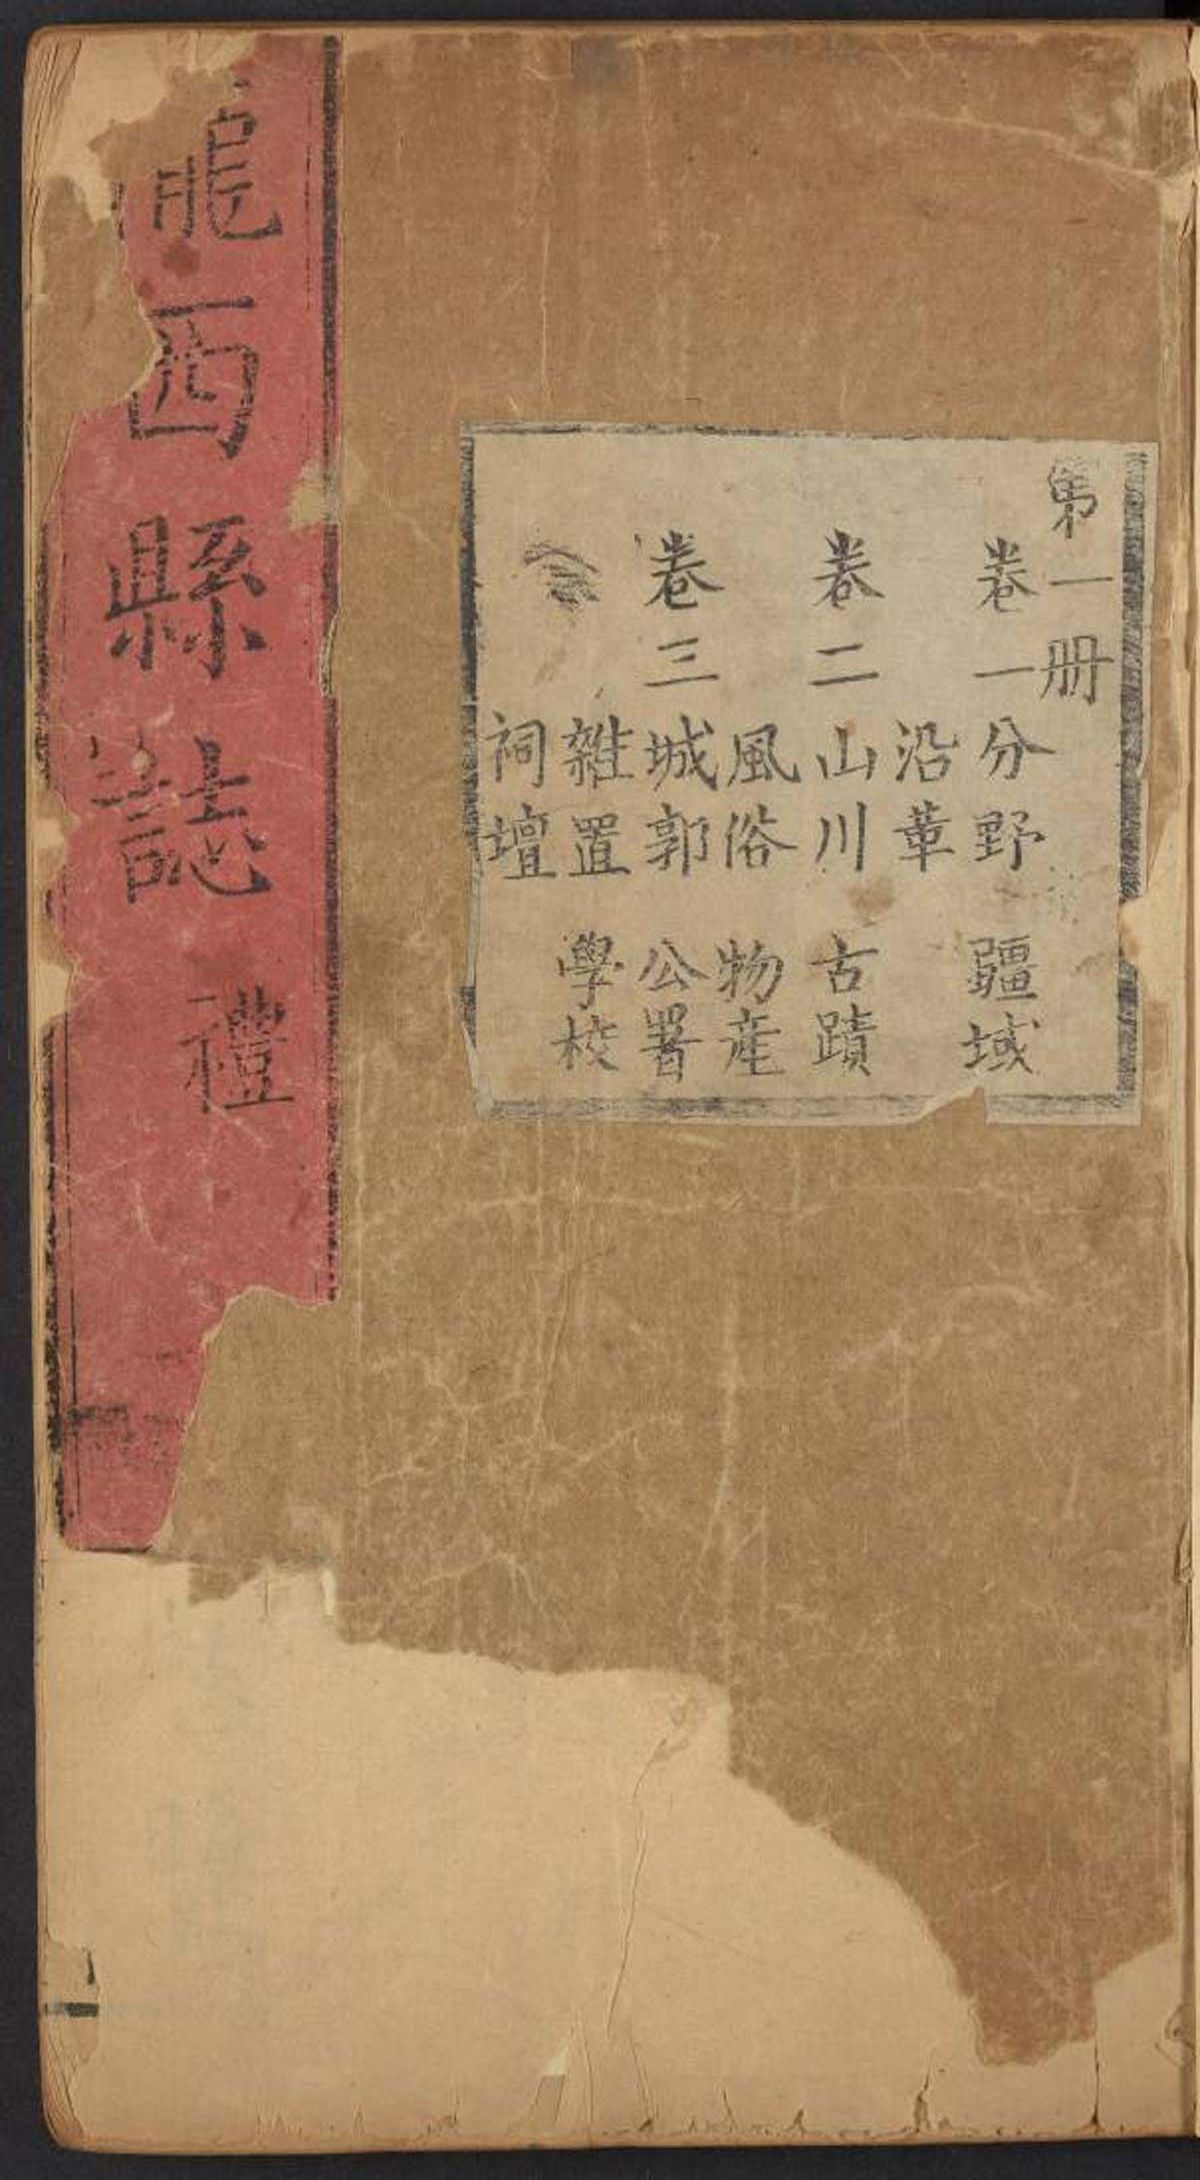 第一册
卷一 分野 疆域
沿革
卷二 山川 古蹟
風俗 物産
卷三 城郭 公署
雜置 學校
祠壇
西縣誌 禮